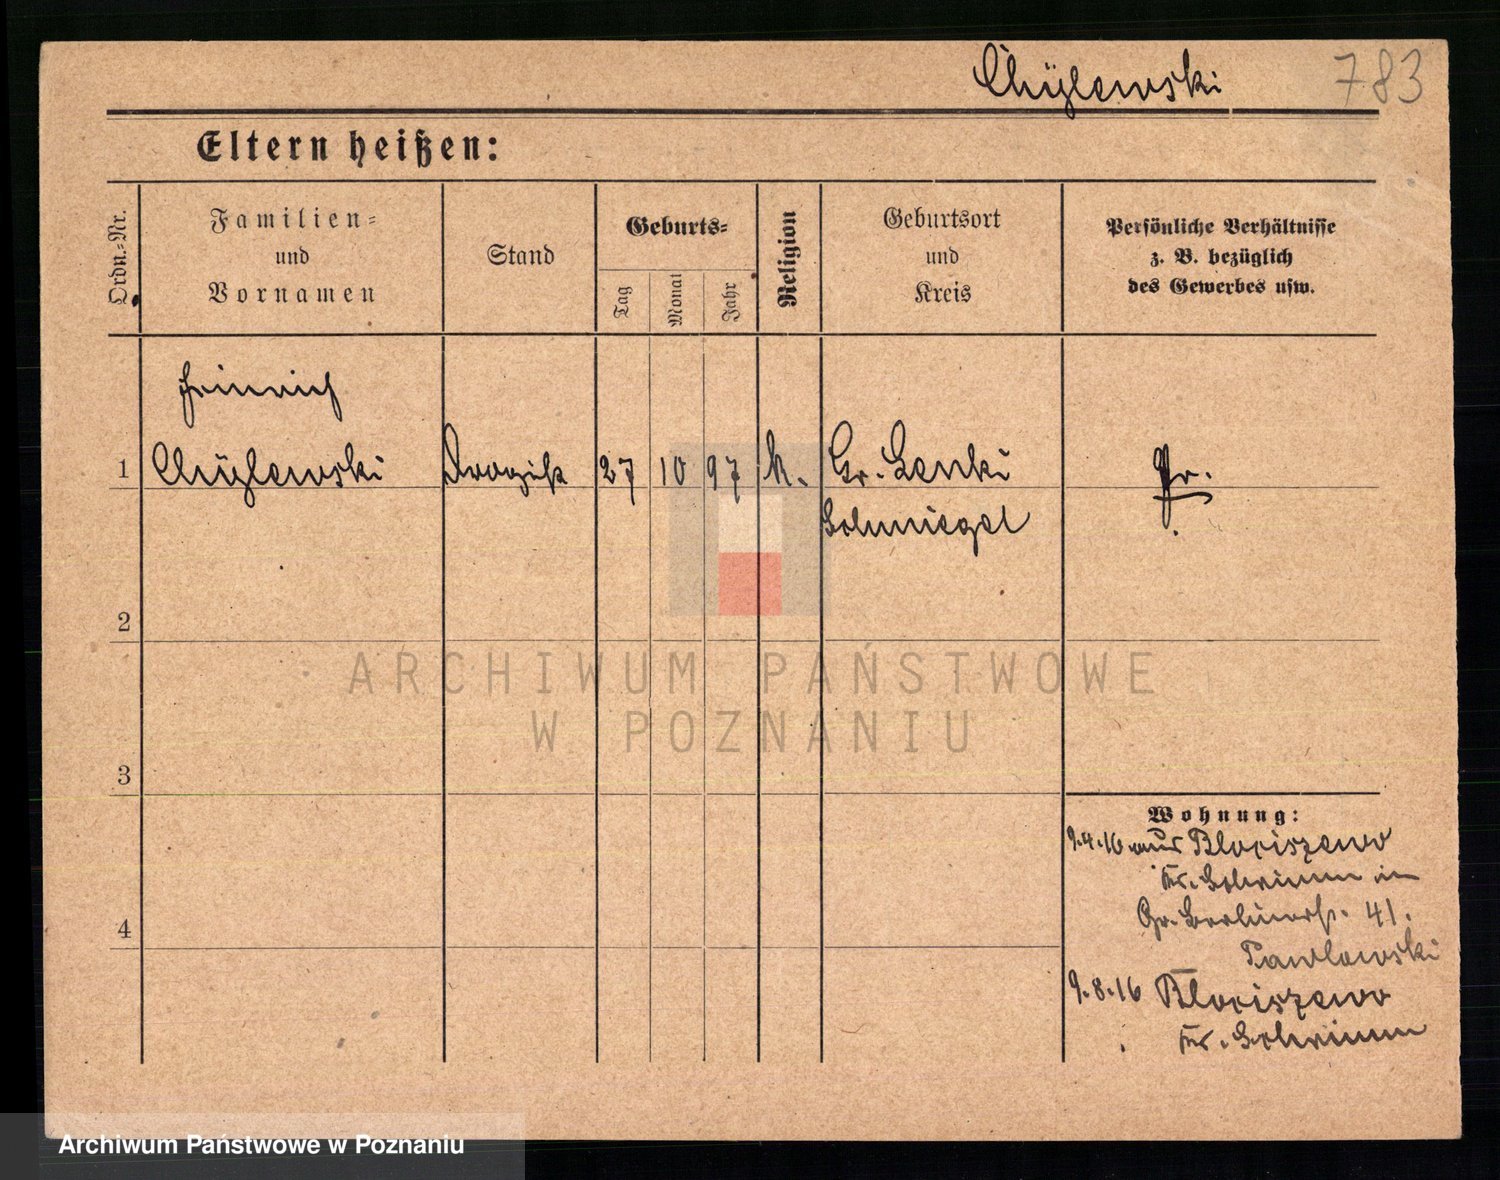 Chÿlewski
783
Eltern heißen:
Ordn.-Nr.
Familien-
und
Vornamen
Stand
Geburts-
Tag
Monat
Jahr
Religion
Geburtsort
und
Kreis
Persönliche Verhältnisse
z. B. bezüglich
des Gewerbes usw.
Heinrich
1 Chÿlewski Drogist 27 10 97 k. Gr. Lenki Pr.
Schmiegel
2
3
4
Wohnung:
9.4.16 aus Blociszewo
Kr. Schrimm in
Gr. Berlinerstr. 41.
Pawlowski
9.8.16 Blociszewo
Kr. Schrimm
ARCHIWUM PAŃSTWOWE
W POZNANIU
Archiwum Państwowe w Poznaniu